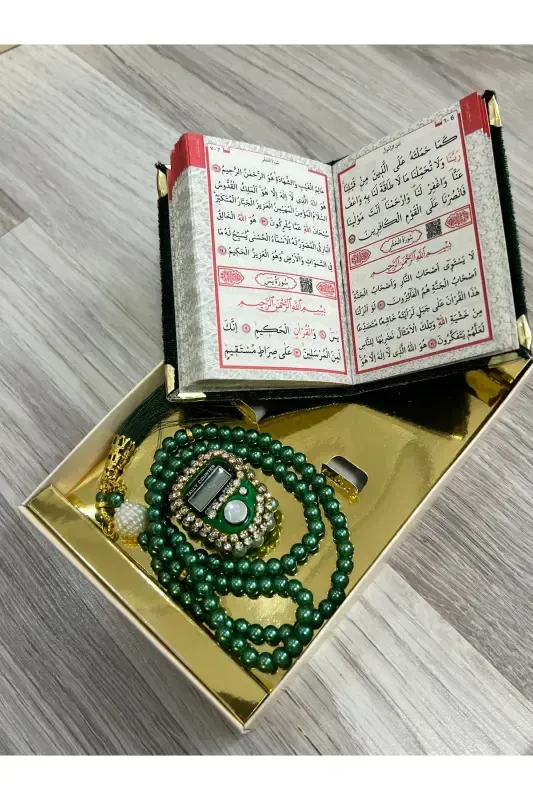 كَمَا حَمَلْتَهُ عَلَى الَّذِينَ مِنْ قَبْلِنَا
رَبَّنَا وَلَا تُحَمِّلْنَا مَا لَا طَاقَةَ لَنَا بِهِ وَاعْفُ
عَنَّا وَاغْفِرْ لَنَا وَارْحَمْنَا أَنْتَ مَوْلَينَا
فَانْصُرْنَا عَلَى الْقَوْمِ الْكَافِرِينَ
سُورَةُ الْحَشْرِ
بِسْمِ اللهِ الرَّحْمَنِ الرَّحِيمِ
لَا يَسْتَوِي أَصْحَابُ النَّارِ وَأَصْحَابُ الْجَنَّةِ
أَصْحَابُ الْجَنَّةِ هُمُ الْفَائِزُونَ لَوْ أَنْزَلْنَا
هَذَا الْقُرْآنَ عَلَى جَبَلٍ لَرَأَيْتَهُ خَاشِعًا مُتَصَدِّعًا
مِنْ خَشْيَةِ اللهِ وَتِلْكَ الْأَمْثَالُ نَضْرِبُهَا لِلنَّاسِ
لَعَلَّهُمْ يَتَفَكَّرُونَ هُوَ اللهُ الَّذِي لَا إِلَهَ إِلَّا هُوَ
عَالِمُ الْغَيْبِ وَالشَّهَادَةِ هُوَ الرَّحْمَنُ الرَّحِيمُ
هُوَ اللهُ الَّذِي لَا إِلَهَ إِلَّا هُوَ الْمَلِكُ الْقُدُّوسُ
السَّلَامُ الْمُؤْمِنُ الْمُهَيْمِنُ الْعَزِيزُ الْجَبَّارُ الْمُتَكَبِّرُ
سُبْحَانَ اللهِ عَمَّا يُشْرِكُونَ هُوَ اللهُ الْخَالِقُ
الْبَارِئُ الْمُصَوِّرُ لَهُ الْأَسْمَاءُ الْحُسْنَى يُسَبِّحُ لَهُ مَا
فِي السَّمَوَاتِ وَالْأَرْضِ وَهُوَ الْعَزِيزُ الْحَكِيمُ
سُورَةُ يس
بِسْمِ اللهِ الرَّحْمَنِ الرَّحِيمِ
يس وَالْقُرْآنِ الْحَكِيمِ إِنَّكَ
لَمِنَ الْمُرْسَلِينَ عَلَى صِرَاطٍ مُسْتَقِيمٍ